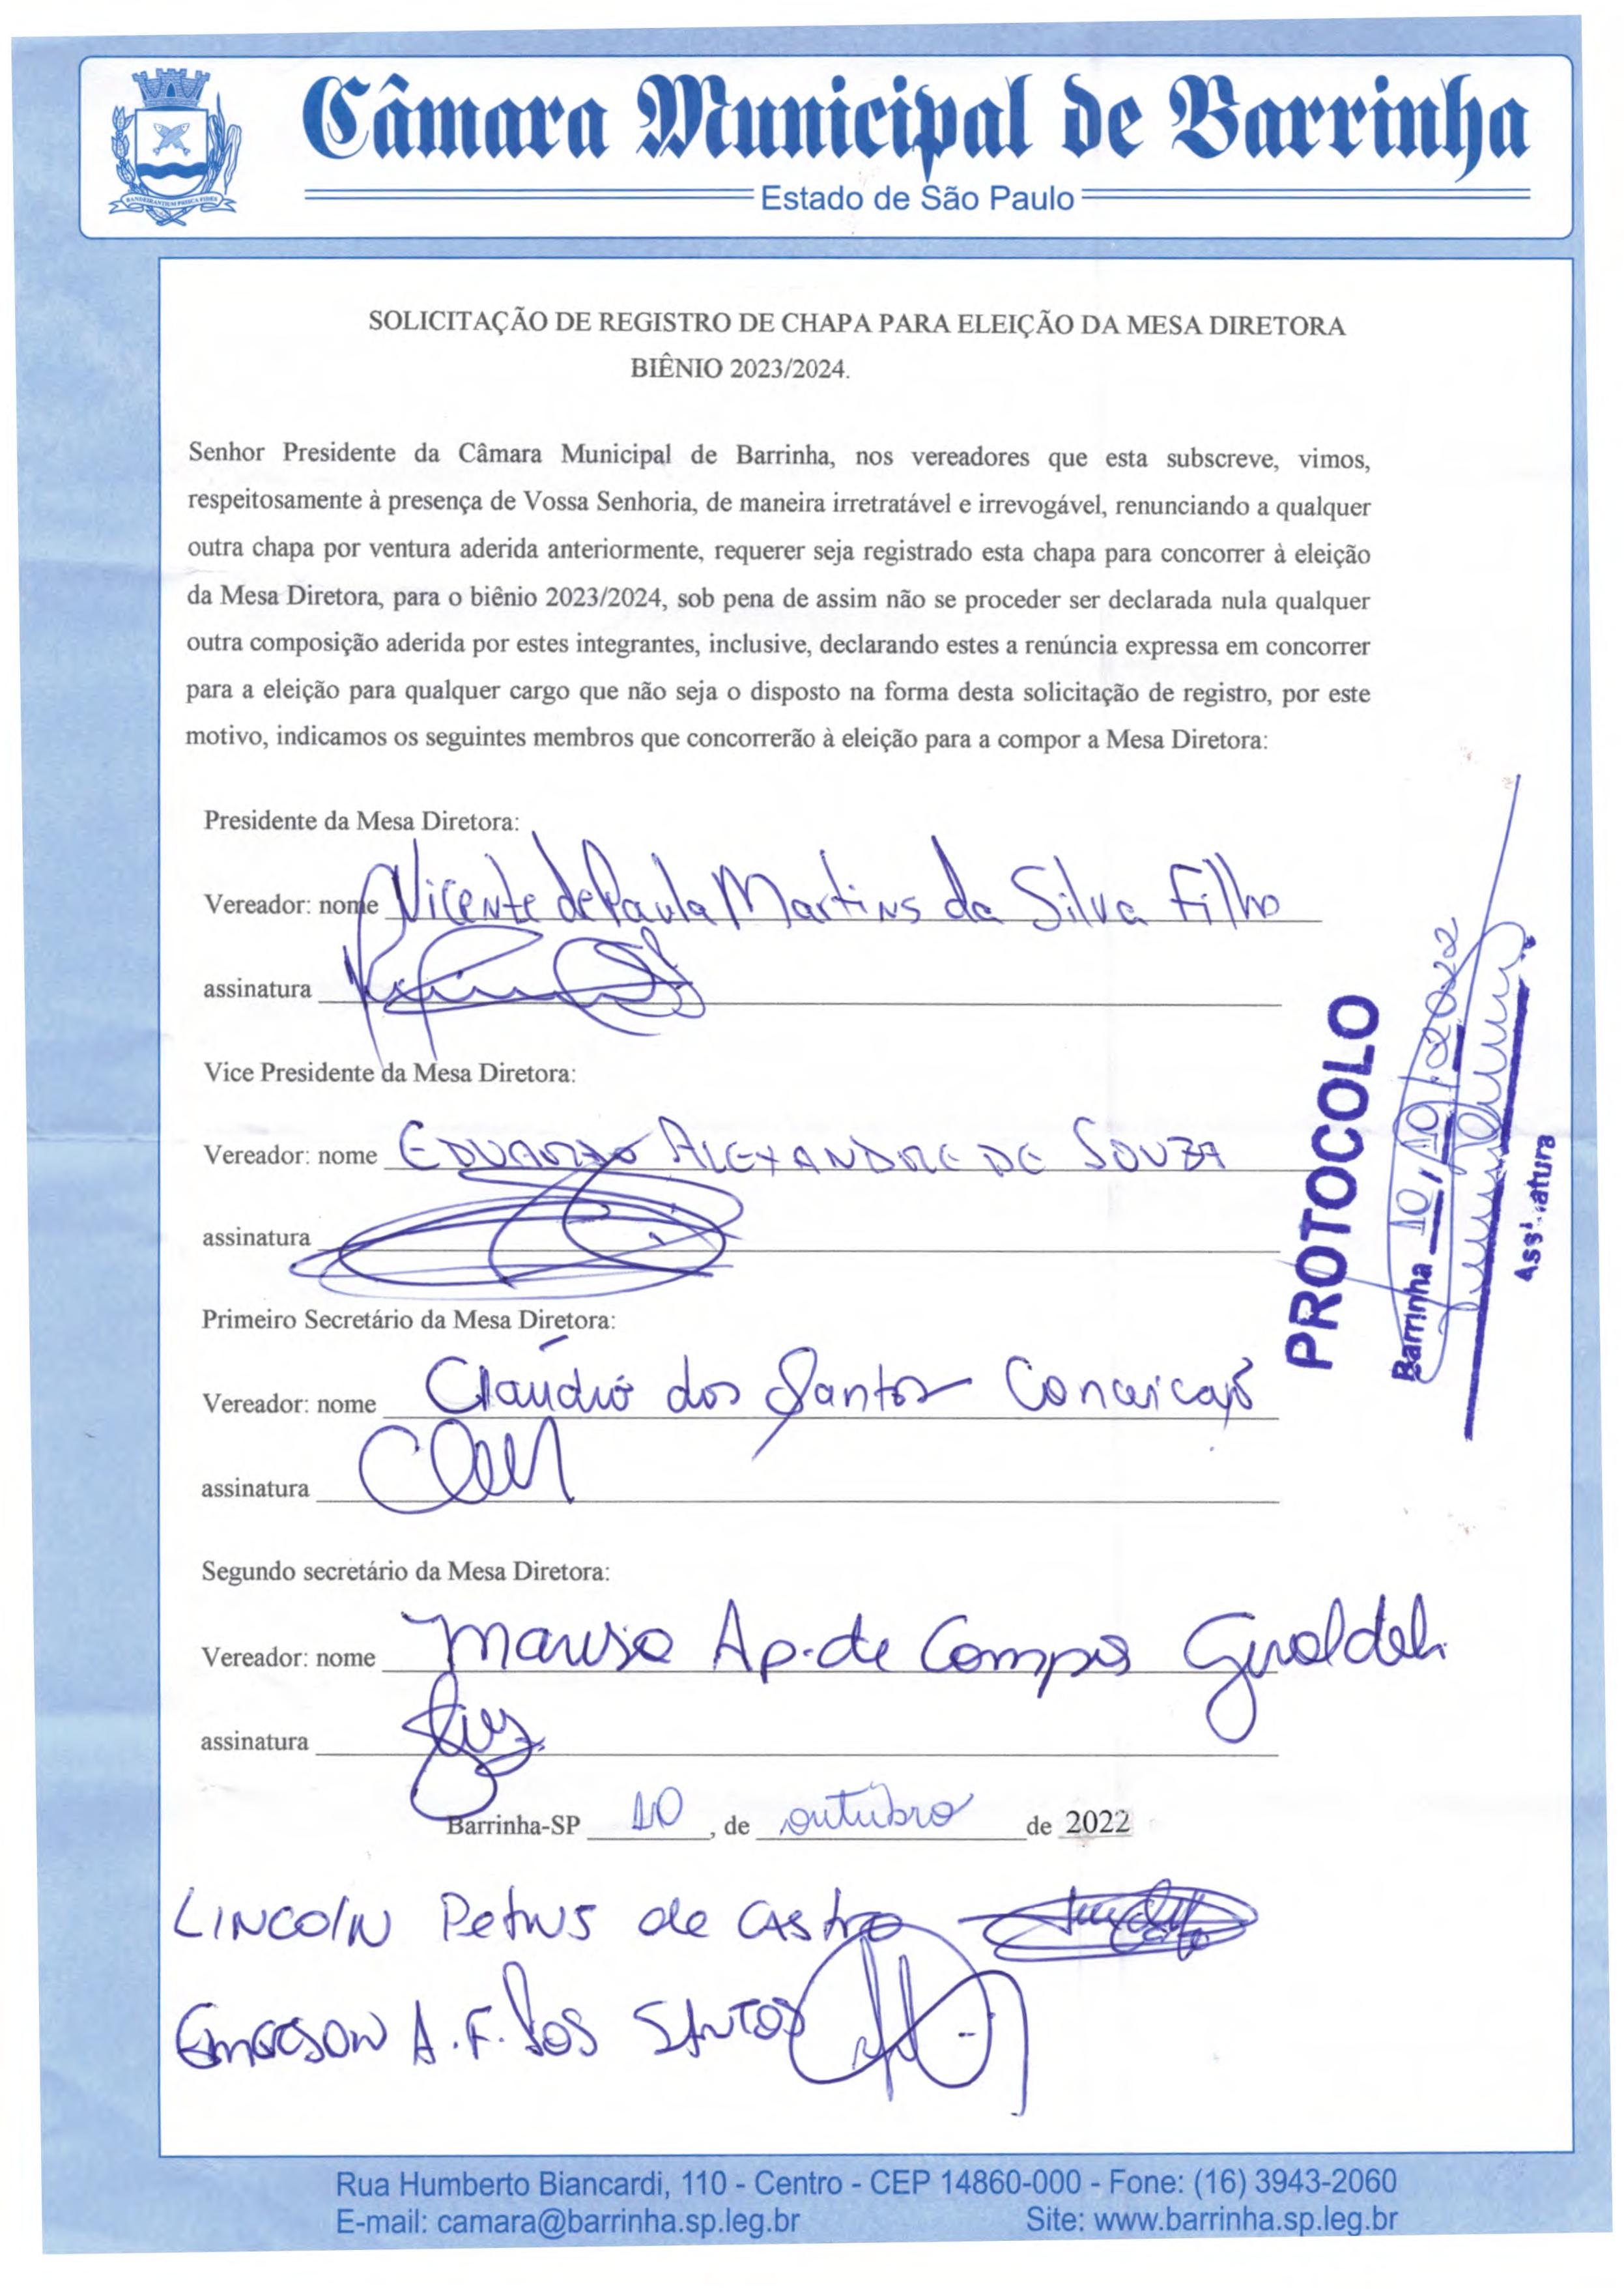 Câmara Municipal de Barrinha
Estado de São Paulo
BANDEIRANTIUM PRISCA FIDES
SOLICITAÇÃO DE REGISTRO DE CHAPA PARA ELEIÇÃO DA MESA DIRETORA
BIÊNIO 2023/2024.
Senhor Presidente da Câmara Municipal de Barrinha, nos vereadores que esta subscreve, vimos,
respeitosamente à presença de Vossa Senhoria, de maneira irretratável e irrevogável, renunciando a qualquer
outra chapa por ventura aderida anteriormente, requerer seja registrado esta chapa para concorrer à eleição
da Mesa Diretora, para o biênio 2023/2024, sob pena de assim não se proceder ser declarada nula qualquer
outra composição aderida por estes integrantes, inclusive, declarando estes a renúncia expressa em concorrer
para a eleição para qualquer cargo que não seja o disposto na forma desta solicitação de registro, por este
motivo, indicamos os seguintes membros que concorrerão à eleição para a compor a Mesa Diretora:
Presidente da Mesa Diretora:
Vereador: nome Vicente de Paula Martins da Silva Filho
assinatura
Vice Presidente da Mesa Diretora:
Vereador: nome EDUARDO ALEXANDRE DE SOUZA
assinatura
Primeiro Secretário da Mesa Diretora:
Vereador: nome Cláudio dos Santos Conceição
assinatura
Segundo secretário da Mesa Diretora:
Vereador: nome Marisa Ap. de Campos Giraldeli
assinatura
Barrinha-SP 10, de outubro de 2022
PROTOCOLO
Barrinha 10, 10 / 2022
Assinatura
LINCOLN Petrus de CAStro
EMERSON A. F. DOS SANTOS
Rua Humberto Biancardi, 110 - Centro - CEP 14860-000 - Fone: (16) 3943-2060
E-mail: camara@barrinha.sp.leg.br Site: www.barrinha.sp.leg.br